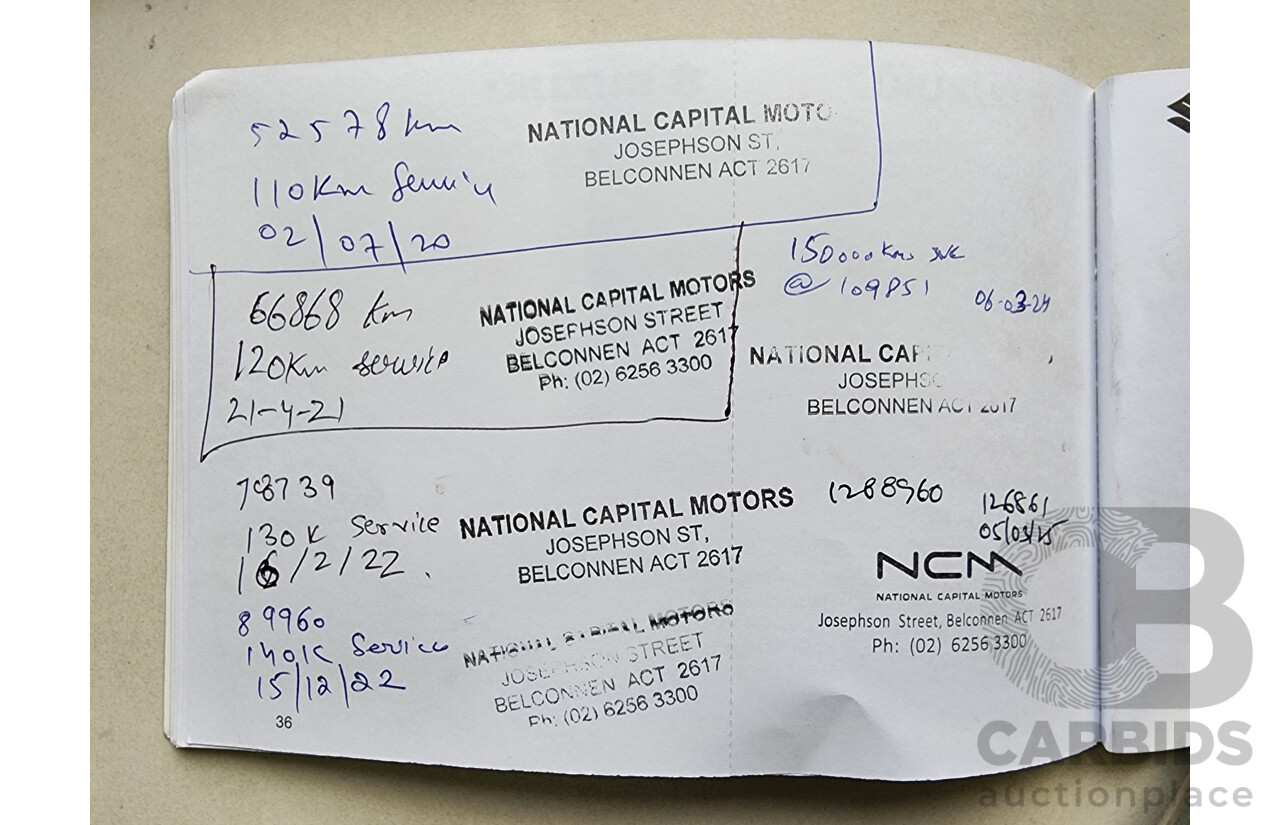 52578 km
110Km Service
02/07/20
NATIONAL CAPITAL MOTO
JOSEPHSON ST,
BELCONNEN ACT 2617
66868 Km
120Km service
21-4-21
NATIONAL CAPITAL MOTORS
JOSEPHSON STREET
BELCONNEN ACT 2617
Ph: (02) 6256 3300
78739
130K Service
16/2/22.
NATIONAL CAPITAL MOTORS
JOSEPHSON ST,
BELCONNEN ACT 2617
89960
140K Service
15/12/22
NATIONAL CAPITAL MOTORS
JOSEPHSON STREET
BELCONNEN ACT 2617
Ph: (02) 6256 3300
36
150000Km svc
@ 109851
06-03-24
NATIONAL CAP
JOSEPHSO
BELCONNEN ACT 2617
1288960
126861
05/03/25
NCM
NATIONAL CAPITAL MOTORS
Josephson Street, Belconnen ACT 2617
Ph: (02) 6256 3300
CB
CARBIDS
auctionplace